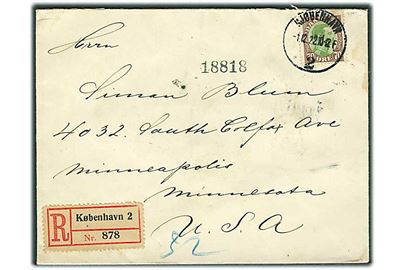 Herrn
KJØBENHAVN
2
18818
Simon Blum
4032. South Colfax Ave
Minneapolis
Minnesota
U.S.A
R
København 2
Nr. 878
52